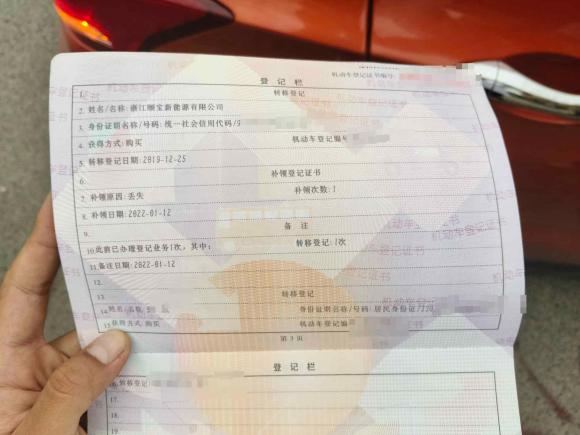 登记栏
机动车登记证书编号:
1. 转移登记
2. 姓名/名称: 浙江顺宝新能源有限公司
3. 身份证明名称/号码: 统一社会信用代码/9
4. 获得方式: 购买 机动车登记编号
5. 转移登记日期: 2019-12-25
6. 补领登记证书
7. 补领原因: 丢失 补领次数: 1
8. 补领日期: 2022-01-12
9. 备注
10. 此前已办理登记业务1次, 其中: 转移登记: 1次
11. 备注日期: 2022-01-12
12.
13. 转移登记
14. 姓名/名称: 身份证明名称/号码: 居民身份证/330
15. 获得方式: 购买 机动车登记编
第3页
登记栏
16. 转移登记
17.
18.
19.